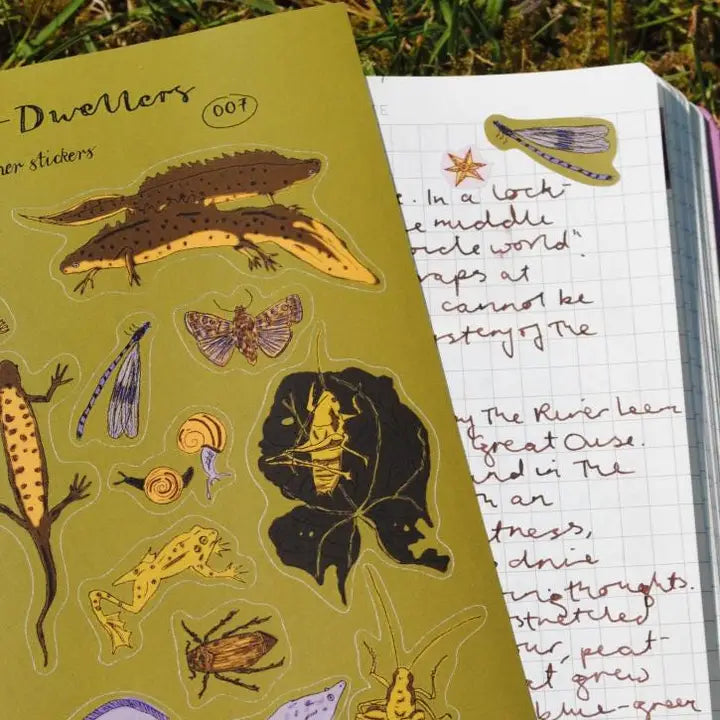 -Dwellers
007
ner stickers
e. In a lock-
e middle
cle world".
raps at
cannot be
stery of the
y The River Leem
Great Ouse.
nd in The
an
tness,
drive
thoughts.
stretched
ur, peat-
t grew
blue-green